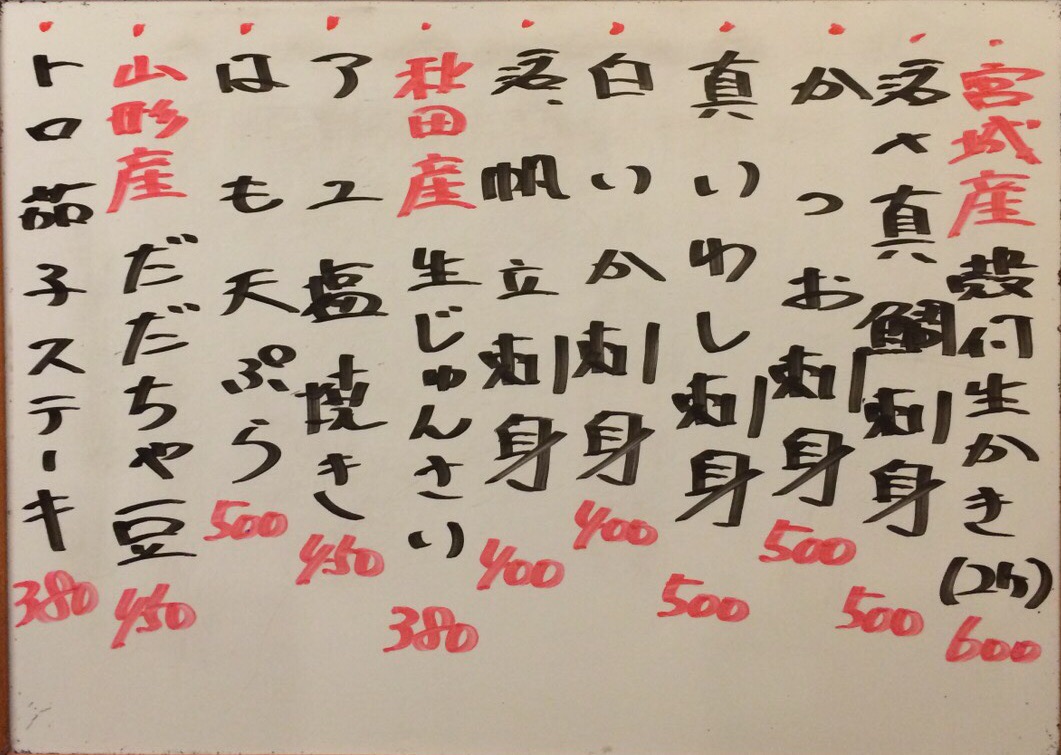 宮城産殻付生かき(2ケ) 600
活〆真鯛刺身 500
かつお刺身 500
真いわし刺身 500
白いか刺身 400
活帆立刺身 400
秋田産生じゅんさい 380
アユ塩焼き 450
はも天ぷら 500
山形産だだちゃ豆 450
トロ茄子ステーキ 380